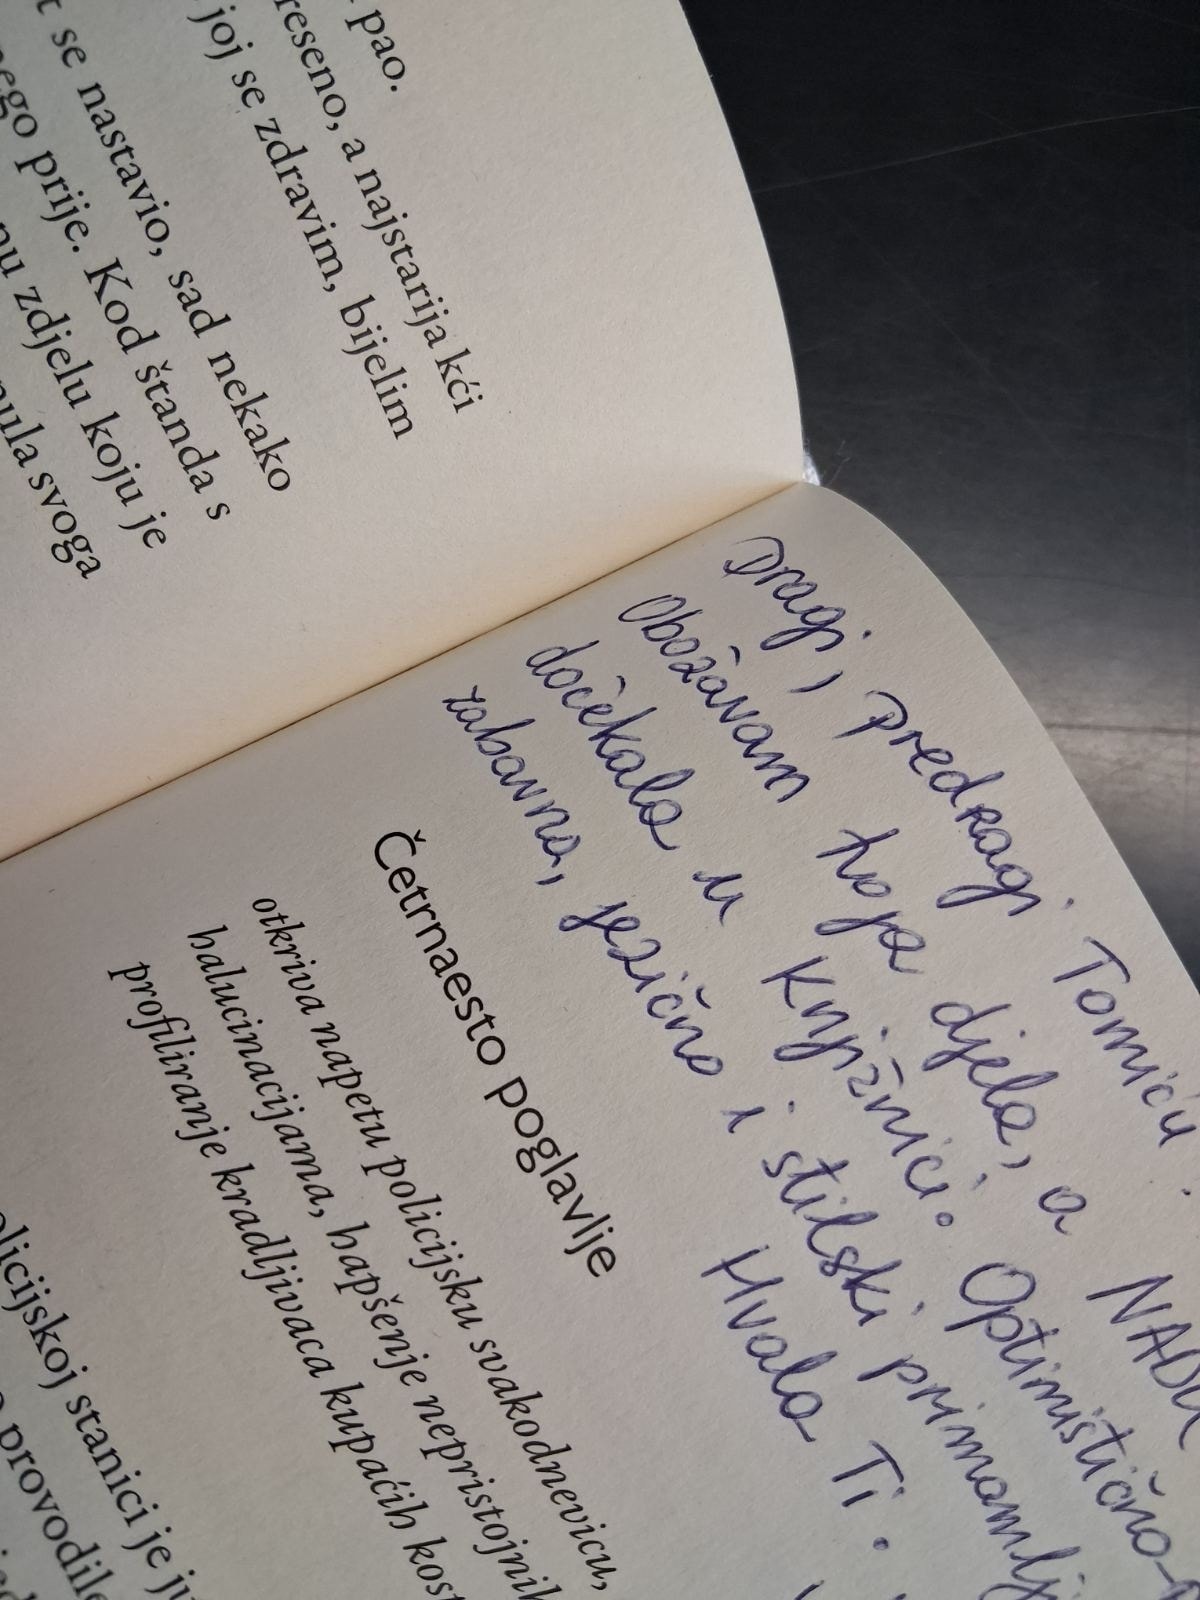 pao.
reseno, a najstarija kći
joj se zdravim, bijelim
se nastavio, sad nekako
nego prije. Kod štanda s
zdjelu koju je
svoga
Dragi, predragi Tomiću
Obožavam tvoja djela, a NADU
dočekala u Knjižnici. Optimistično-
zabavno, jezično i stilski primamlj
Hvala Ti.
Četrnaesto poglavlje
otkriva napetu policijsku svakodnevicu,
halucinacijama, hapšenje nepristojnih
profiliranje kradljivaca kupaćih kost
olicijskoj stanici je
provodile